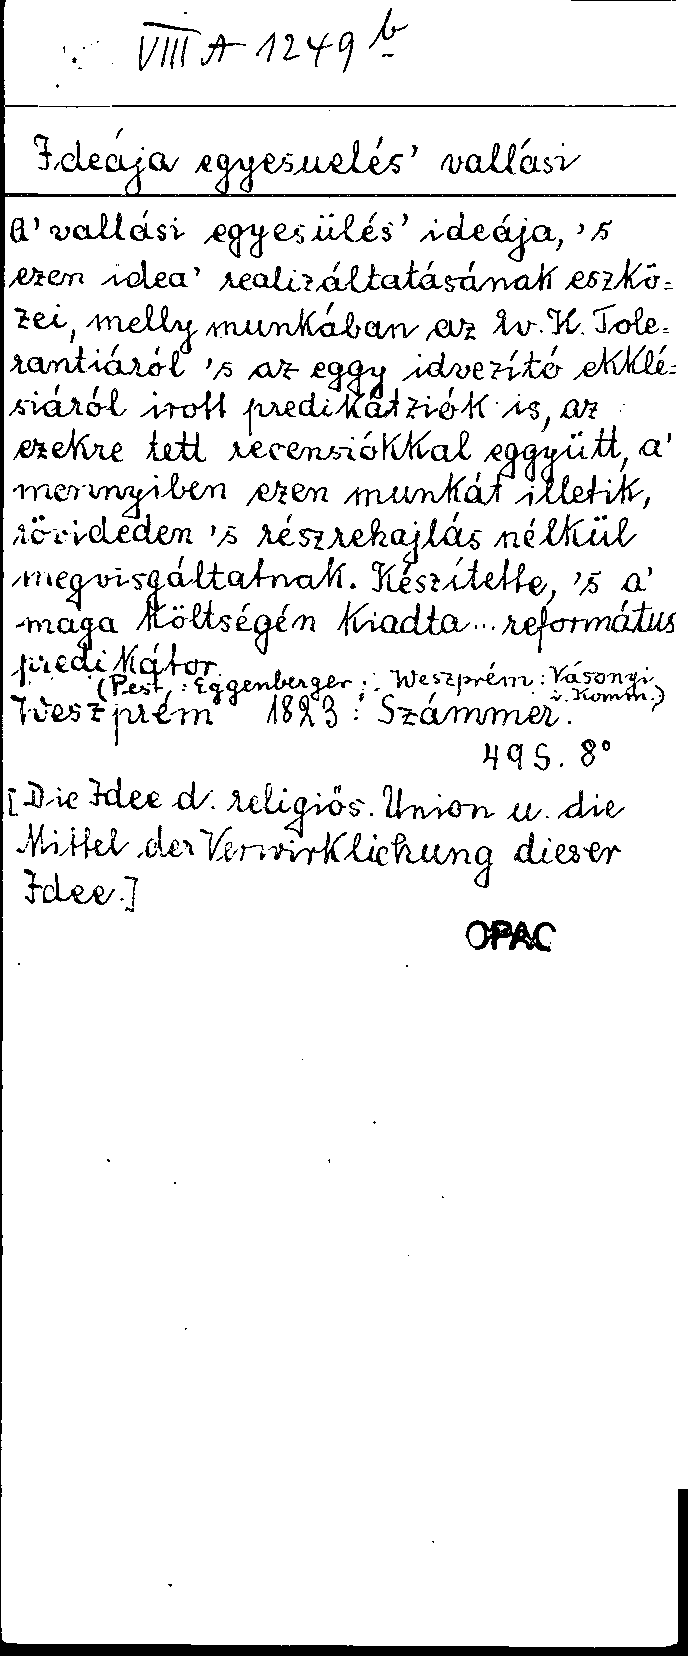 VIII A 1249 b
Ideája egyesuelés' vallási
A' vallási egyesülés' ideája, 's
ezen idea' realizáltatásának eszkö=
zei, melly munkában az Ev. K. Tole=
rantiáról 's az eggy idvezítő ekklé=
siáról irott predikátziók is, az
ezekre tett recensiókkal eggyütt, a'
mennyiben ezen munkát illetik,
rövideden 's részrehajlás nélkül
megvisgáltatnak. Készítette, 's a'
maga költségén kiadta... református
predikátor
(Pest: Eggenberger; Weszprém: Vásonyi
u. Komm.)
Weszprém 1823: Számmer.
49 S. 8°
[Die Idee d. religiös. Union u. die
Mittel der Verwirklichung dieser
Idee.]
OPAC